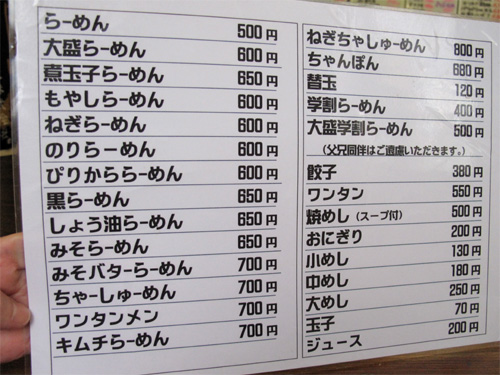 らーめん 500円
大盛らーめん 600円
煮玉子らーめん 650円
もやしらーめん 600円
ねぎらーめん 600円
のりらーめん 600円
ぴりかららーめん 600円
黒らーめん 650円
しょう油らーめん 650円
みそらーめん 650円
みそバターらーめん 700円
ちゃーしゅーめん 700円
ワンタンメン 700円
キムチらーめん 700円
ねぎちゃしゅーめん 800円
ちゃんぽん 680円
替玉 120円
学割らーめん 400円
大盛学割らーめん 500円
(父兄同伴はご遠慮いただきます。)
餃子 380円
ワンタン 550円
焼めし(スープ付) 500円
おにぎり 200円
小めし 130円
中めし 180円
大めし 250円
玉子 70円
ジュース 200円